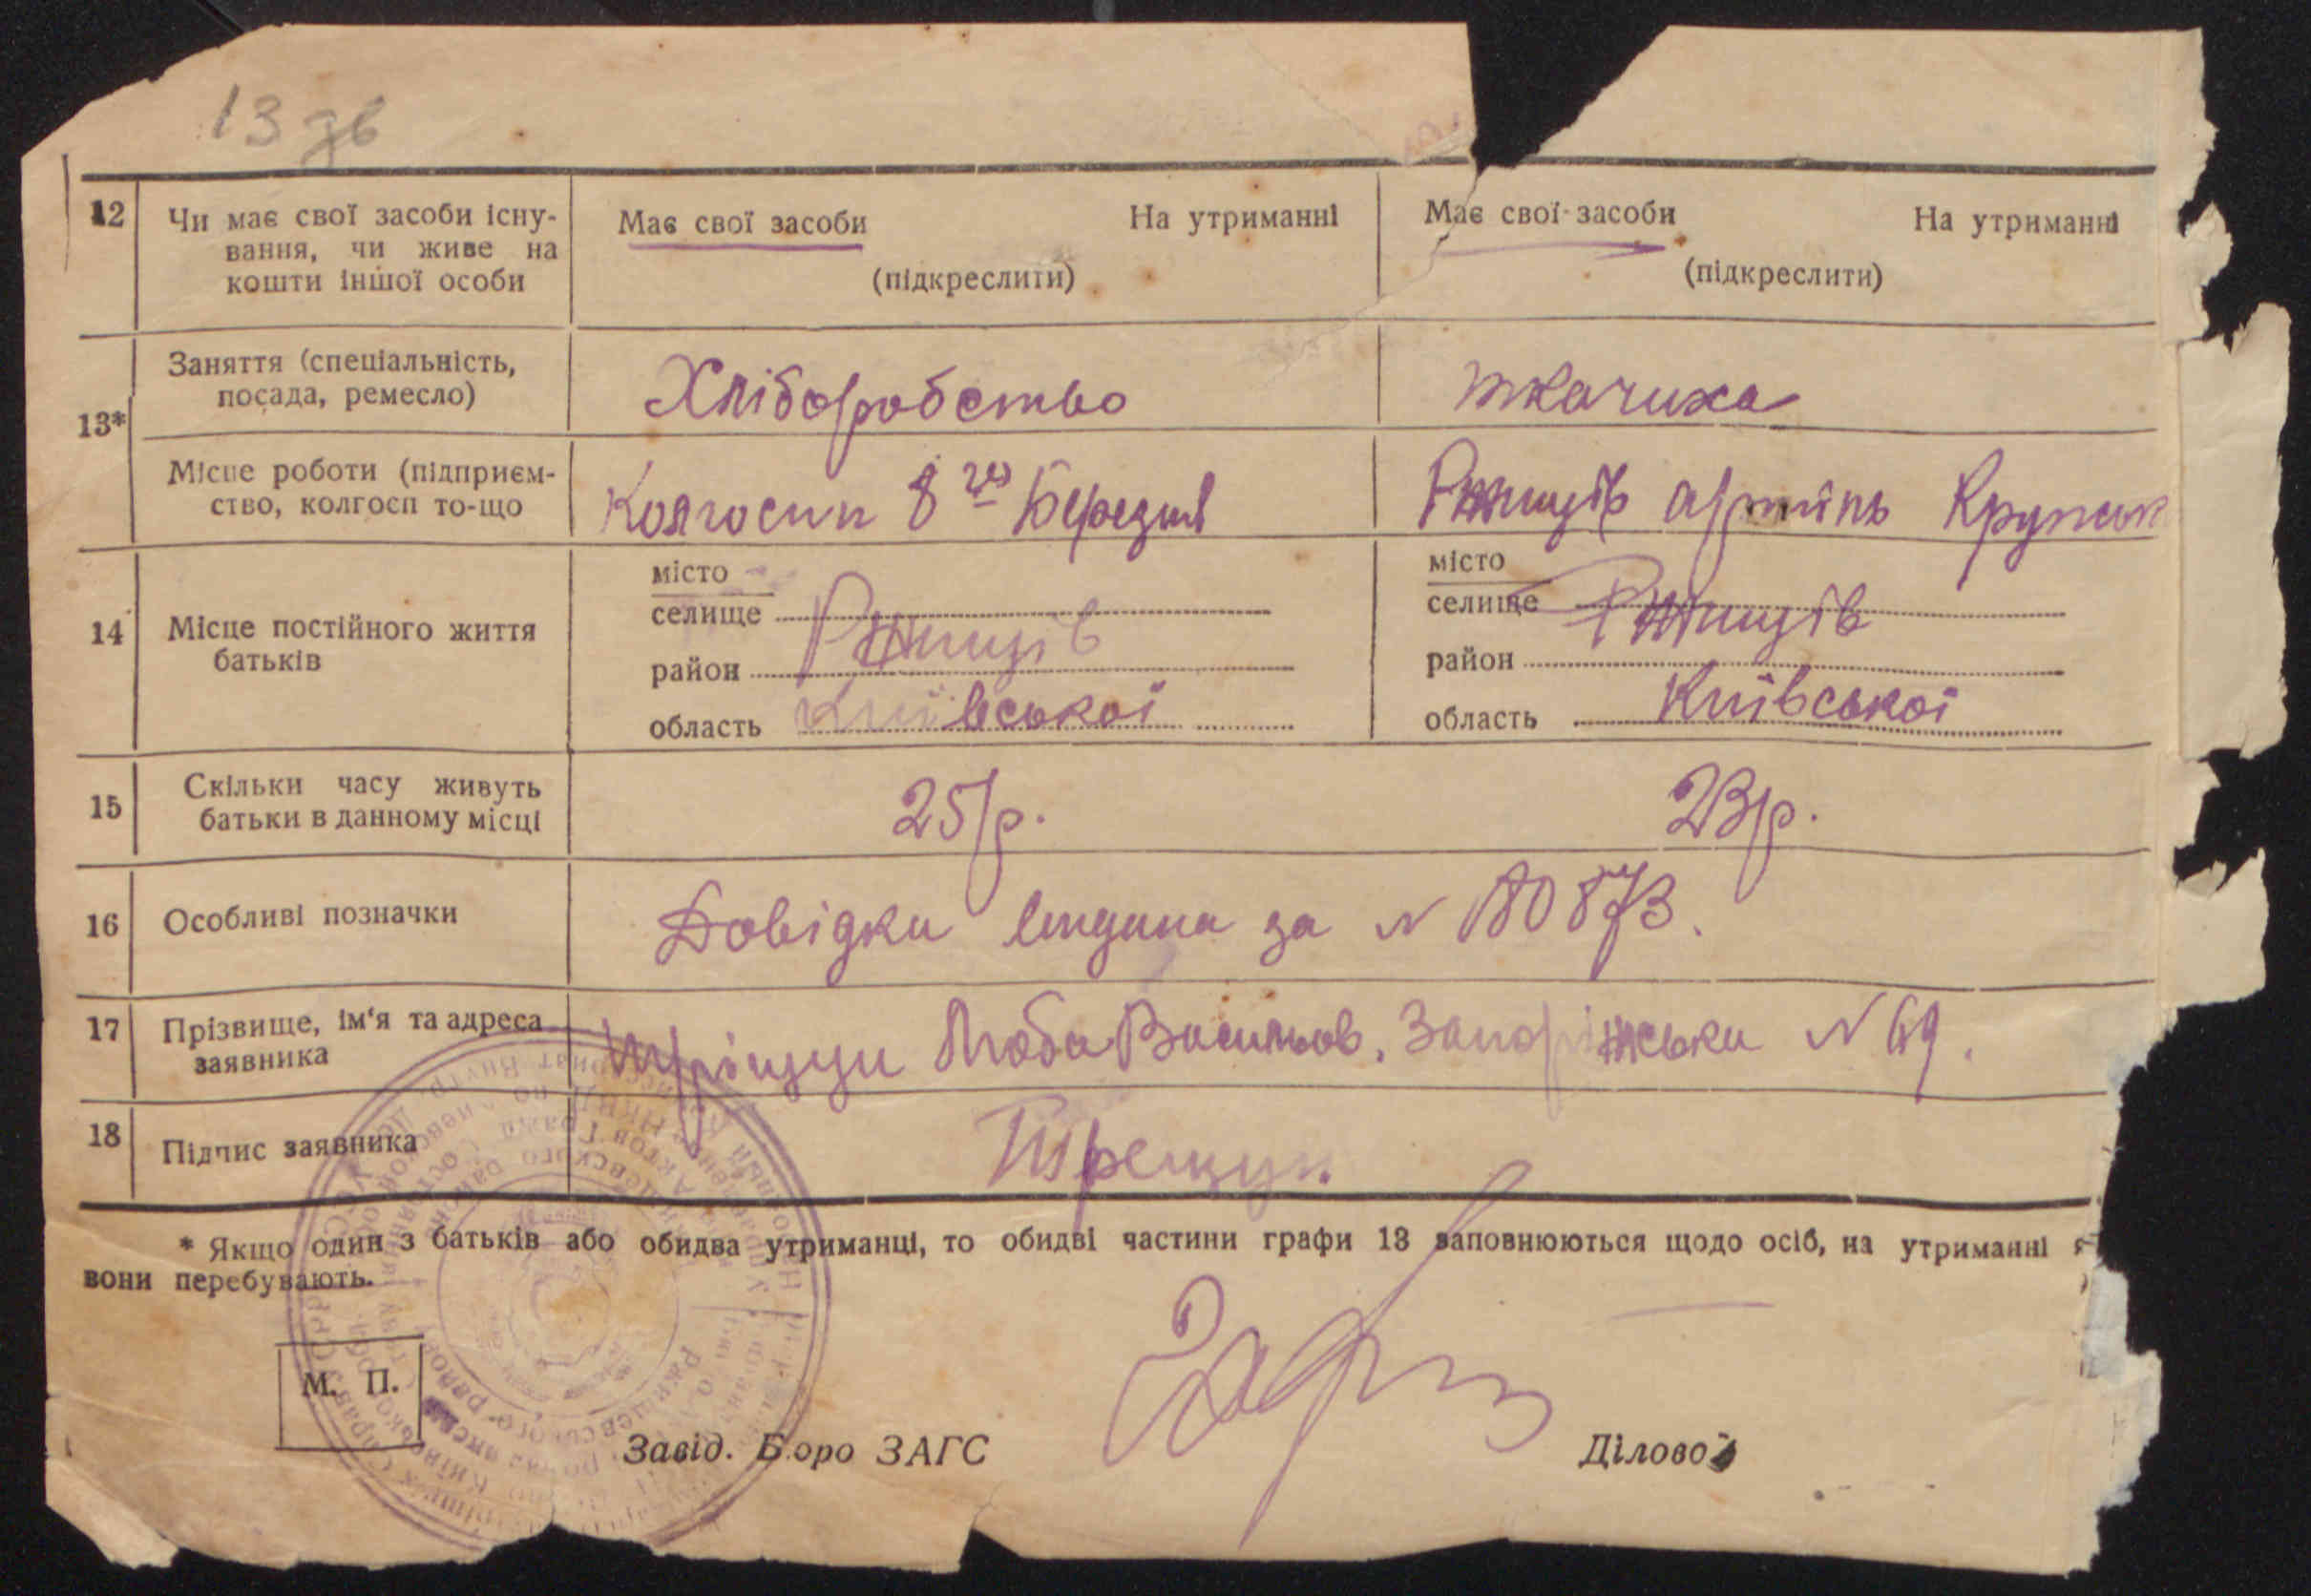 13 зв
12 Чи має свої засоби існу- Має свої засоби На утриманні Має свої засоби На утриманні
вання, чи живе на
кошти іншої особи (підкреслити) (підкреслити)
Заняття (спеціальність,
посада, ремесло) Хліборобство ткачиха
13*
Місце роботи (підприєм-
ство, колгосп то-що Колгоспи 8го Березня Ржищів артіль Крупськ
місто місто
селище Ржищів селище Ржищів
14 Місце постійного життя
батьків район район
область Київської область Київської
15 Скільки часу живуть
батьки в данному місці 25 р. 23 р.
16 Особливі позначки Довідки видана за N 180873.
17 Прізвище, ім'я та адреса
заявника Люба Васильов. Запоріжська N 69.
18 Підпис заявника
* Якщо один з батьків або обидва утриманці, то обидві частини графи 13 заповнюються щодо осіб, на утриманні я
вони перебувають.
М. П.
Завід. Бюро ЗАГС Діловод